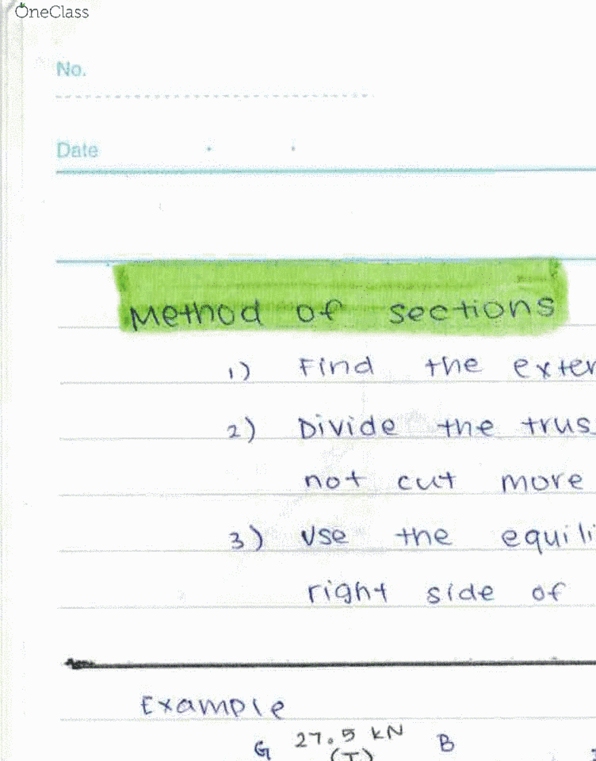 OneClass
No.
Date
Method of sections
1) Find the exter
2) Divide the trus
not cut more
3) Use the equili
right side of
Example
G 27.5 kN B
(T)